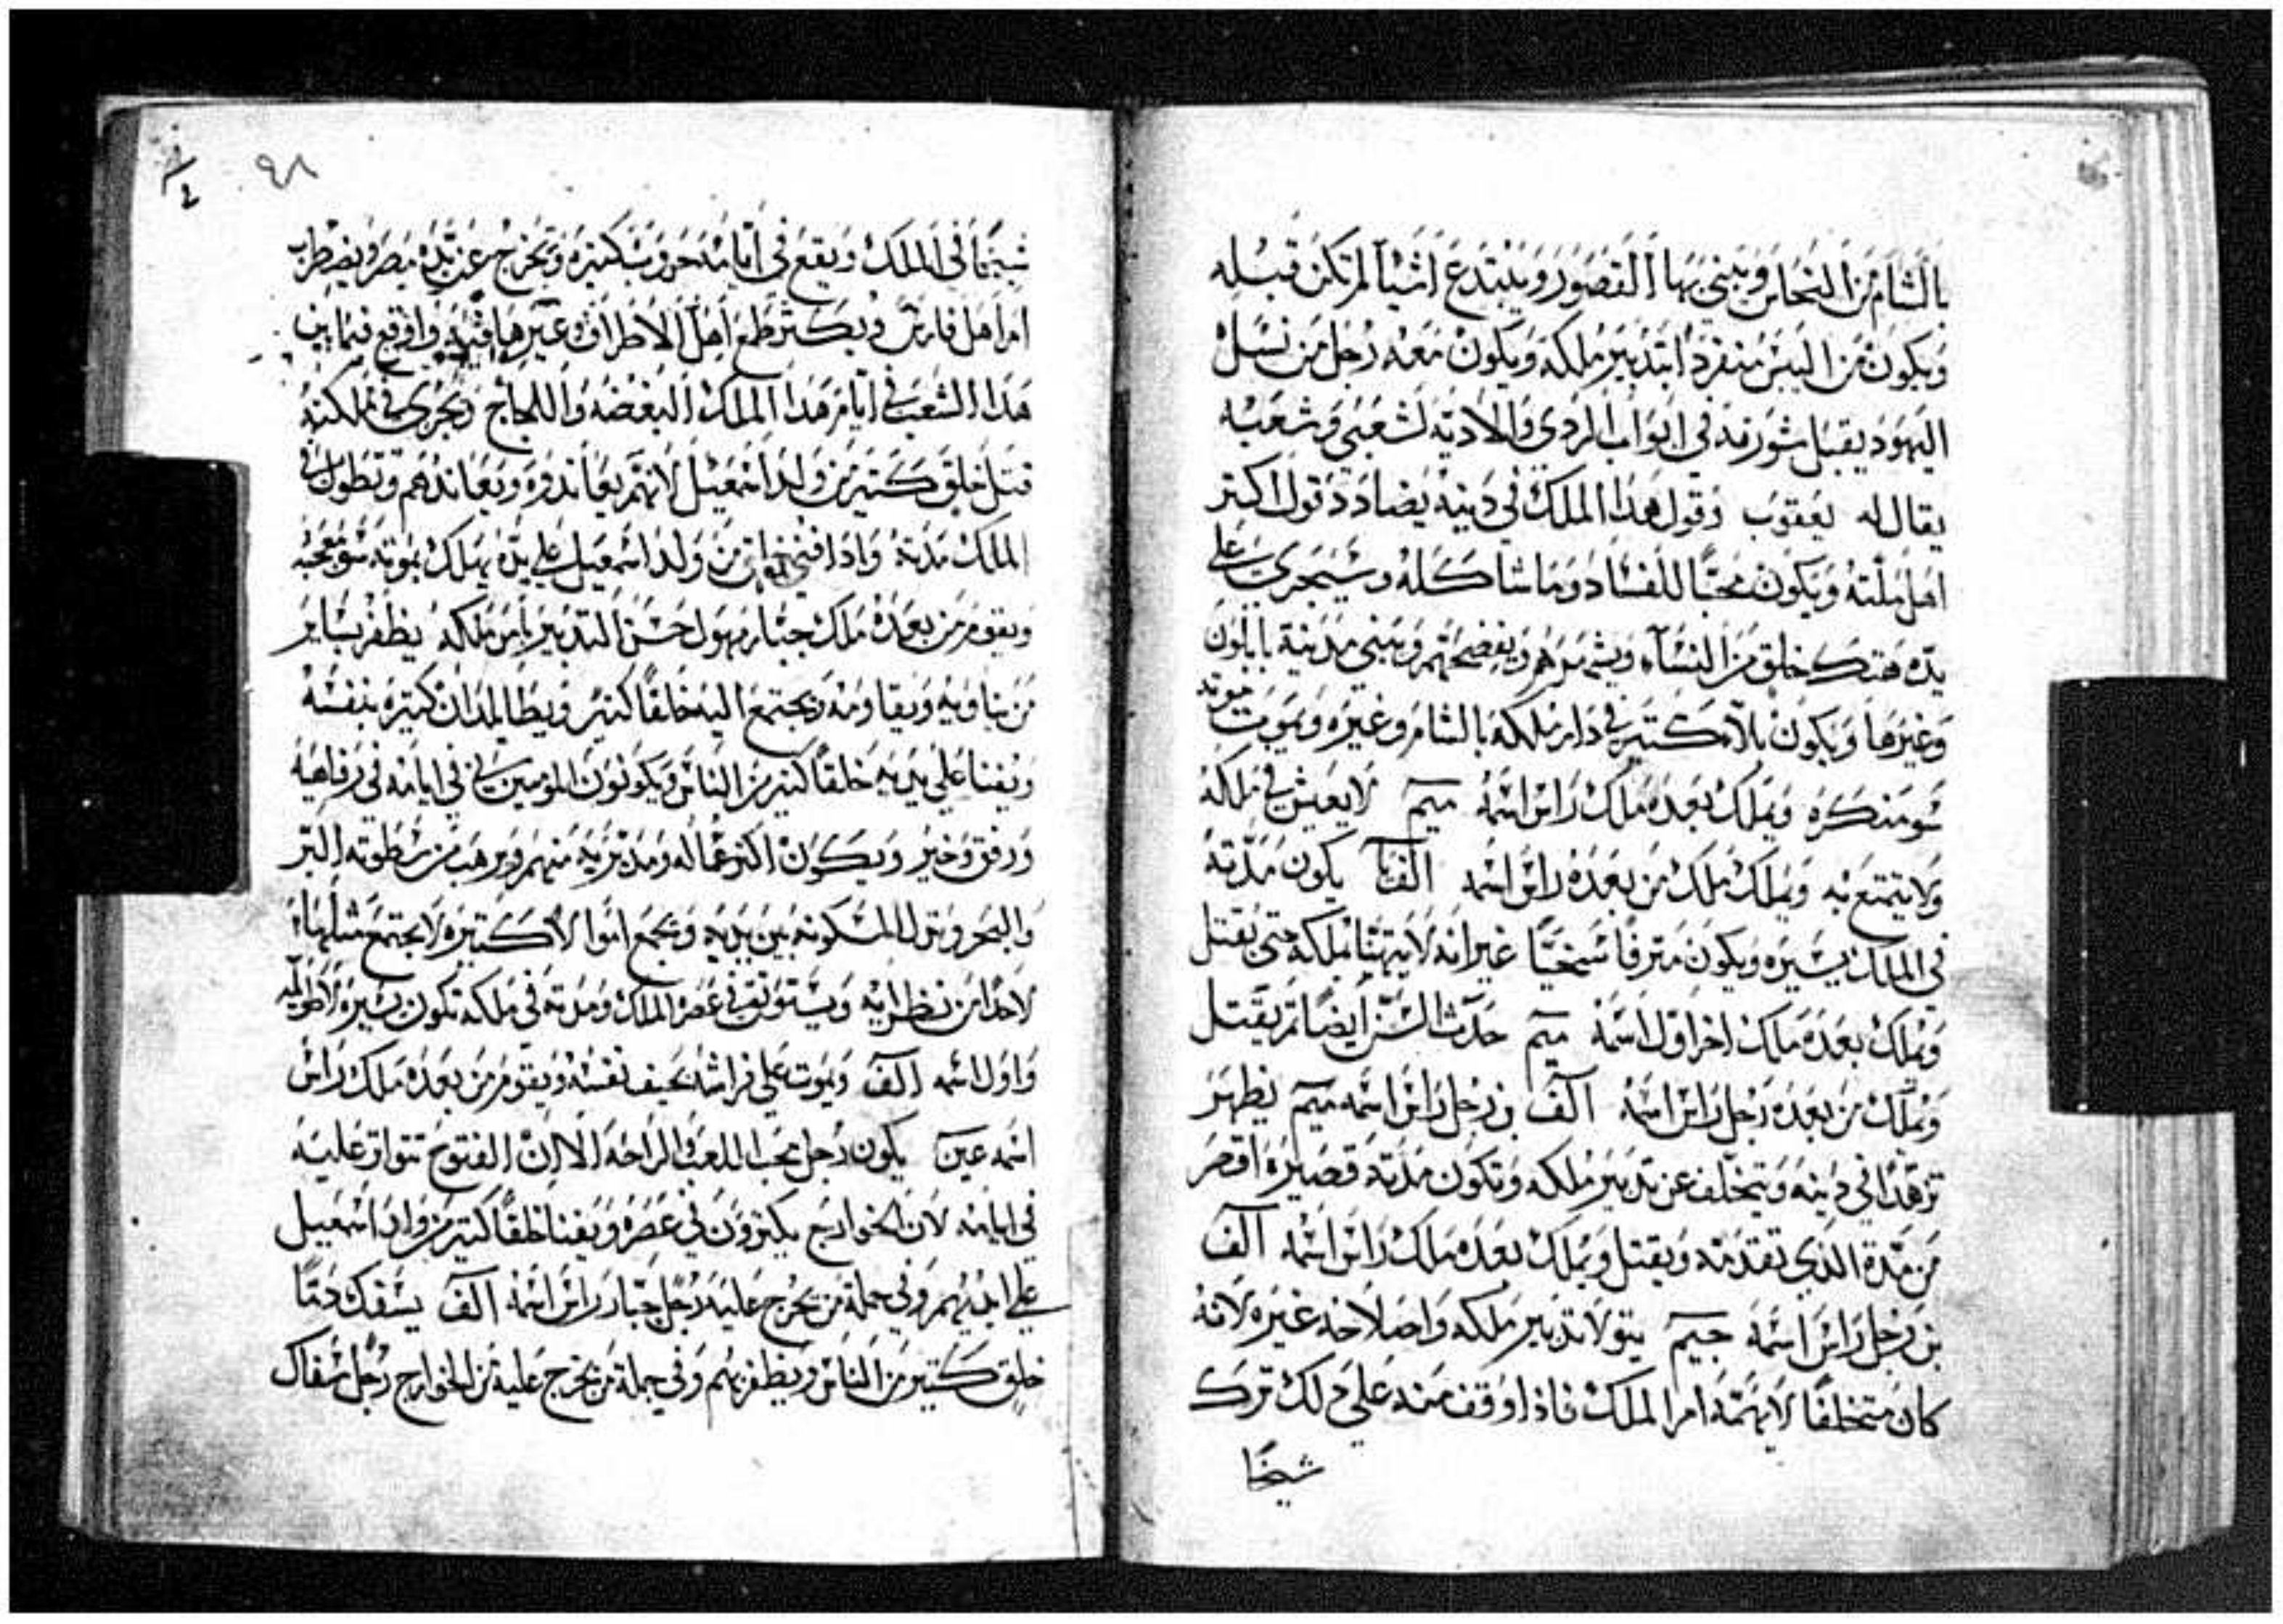 بالشام من النحاس ويبني بها القصور ويبتدع اشيآ لم تكن قبله
ويكون من اليبس منفرداً بتدبير ملكه ويكون معه رجل من نسل
اليهود يقبل شورقه في ابواب الردي والاديه لشعبي وشعبه
يقال له يعقوب وقول هذا الملك في دينه يضادد قول اكتر
اهل ملته ويكون محبًا للفساد وما شاكله وسيجري على
يده هتك خلق من النسآء ويشمرهم ويفضحهم ويبني مدينة بابلون
وغيرها ويكون بلاء كتير في دار ملكه بالشام وغيره ويموت موته
سو منكره ويملك بعده ملك راس اسمه ميم لا يعيش في ملكه
ولا يتمتع به ويملك ملك من بعده راس اسمه الفآ يكون مدته
في الملك يسيره ويكون مترفًا سخيًا غير انه لا يتهنا بملكه حتى يقتل
ويملك بعده ملك اخر اول اسمه ميم حدث السن ايضًا تم يقتل
ويملك من بعده رجل راس اسمه الف بن رجل راس اسمه ميم يظهر
تزهدًا في دينه ويتخلف عن تدبير ملكه وتكون مدته قصيره اقصر
من مدة الذي تقدمه ويقتل ويملك بعده ملك راس اسمه الف
بن رجل راس اسمه جيم يتولا تدبير ملكه واصلاحه غيره لانه
كان متخلفًا لا يهمه امر الملك فاذا وقف منه على ذلك ترك
شيخًا
٩٨
شيخًا في الملك ويقع في ايامه حروب كتيره وتخرج عن يده مصر ويضطرب
امر اهل فارس ويكتر طمع اهل الاطراف وغيرها فيه واوقع فيما بين
هذا الشعب في ايام هذا الملك البغضه واللجاج ويجري في مملكته
قتل خلق كتير من ولد اسمعيل لانهم يعاندوه ويعاندهم وتطول في
الملك مدته واذا فني خلق من ولد اسمعيل على يده يهلك بموته سو تعجبه
ويقوم من بعده ملك جبار مهول حسن التدبير بامر ملكه يظفر بساير
من يناويه ويقاومه ويجتمع اليه خلقًا كتير ويطا بلدان كتيره بنفسه
ويفنا على يديه خلقًا كتير من الناس ويكونون المومنين في ايامه في رفاهيه
ورفق وخير ويكون اكتر عماله ومدبريه منهم ويرهب من سطوته البر
والبحر وتزل المسكونه بين يديه ويجمع اموالا كتيره لا يجتمع مثلها
لاحدا من نظرايه ويستوتق في عصره الملك ومدته في ملكه تكون يسيره لا طويله
واول اسمه الف ويموت على فراشه بحيف نفسه ويقوم من بعده ملك راس
اسمه عين يكون رجل يحب اللعب والراحه الا ان الفتوح تتواتر عليه
في ايامه لان الخوارج يكترون في عصره ويفنا خلقًا كتير من ولد اسمعيل
على ايديهم وفي جملة من يخرج عليه رجل جبار راس اسمه الف يسفك دمًا
خلق كتير من الناس ويظفر بهم وفي جملة من يخرج عليه من الخوارج رجل سفاك